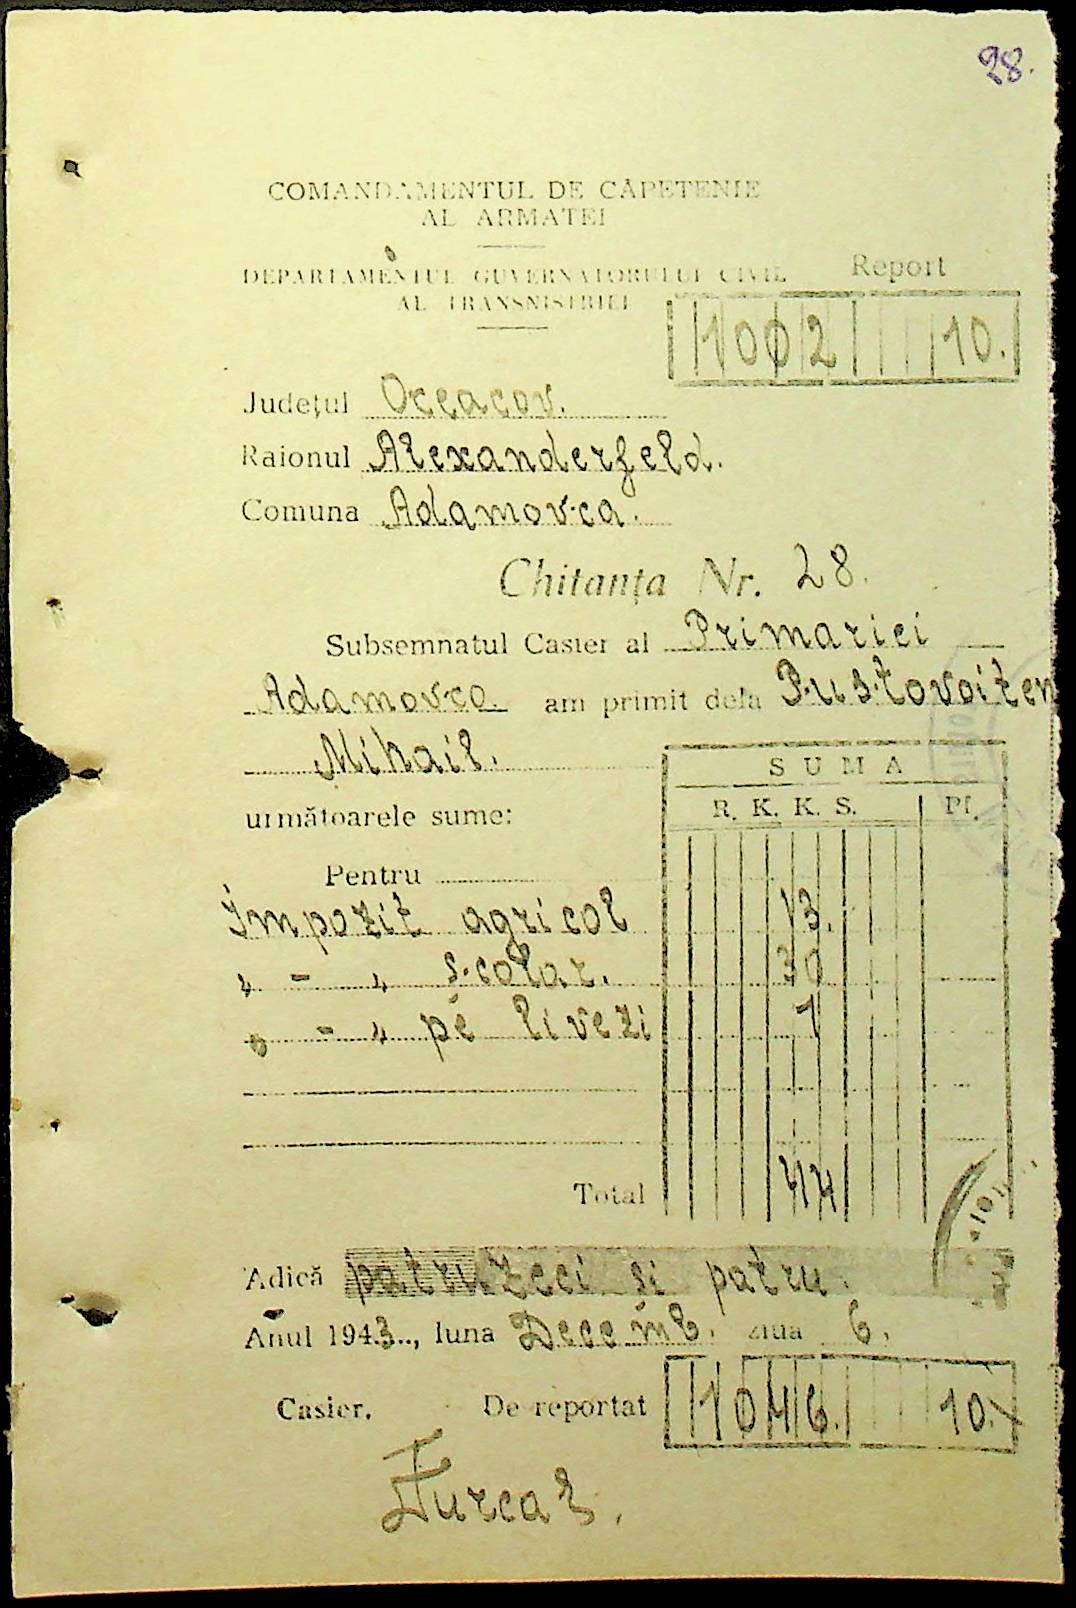 28.
COMANDAMENTUL DE CĂPETENIE
AL ARMATEI
DEPARTAMENTUL GUVERNATORULUI CIVIL
AL TRANSNISTRIEI
Report
1002 10.
Județul Oceacov.
Raionul Alexanderfeld.
Comuna Adamovca.
Chitanța Nr. 28.
Subsemnatul Casier al Primariei
Adamovca. am primit dela Pustovoiten
Mihail.
SUMA
R. K. K. S. Pf.
următoarele sume:
Pentru
Impozit agricol 13.
„ - „ scolar. 30
„ - „ pe livezi 1
Total 44
Adică patruzeci si patru.
Anul 1943.., luna Decemb. ziua 6.
Casier. De reportat 1046. 10.